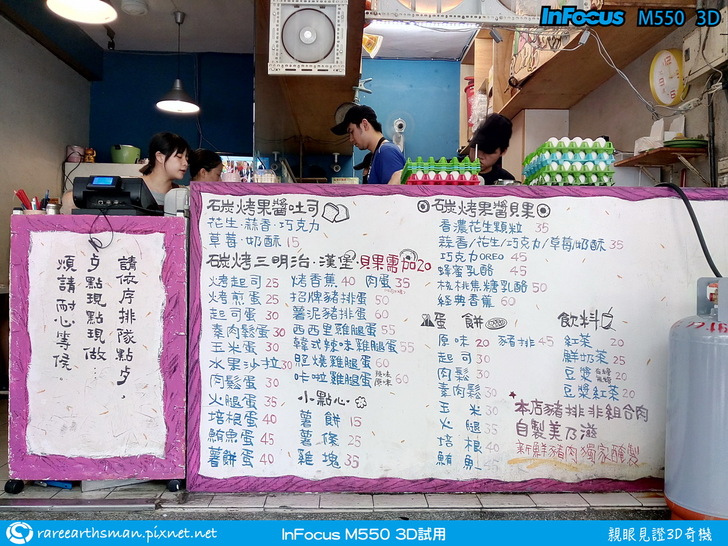 InFocus M550 3D
請依序排隊點ㄢ,
現點現做…
煩請耐心等候.
碳烤果醬吐司
花生·蒜香·巧克力
草莓·奶酥 15
碳烤三明治·漢堡·貝果需加20
烤起司 25
烤煎蛋 25
起司蛋 30
素肉鬆蛋 30
玉米蛋 30
水果沙拉 30
肉鬆蛋 30
火腿蛋 35
培根蛋 40
鮪魚蛋 45
薯餅蛋 40
烤香蕉 40 肉蛋 35
招牌豬排蛋 50
薯泥豬排蛋 60
西西里雞腿蛋 55
韓式辣味雞腿蛋 55
照燒雞腿蛋 60
咔啦雞腿蛋 辣味 原味 60
小點心
薯餅 15
薯條 25
雞塊 35
碳烤果醬貝果
香濃花生顆粒 35
蒜香/花生/巧克力/草莓/奶酥 35
巧克力OREO 45
蜂蜜乳酪 45
核桃焦糖乳酪 50
經典香蕉 60
蛋餅
原味 20 豬排 45
起司 30
肉鬆 30
素肉鬆 30
玉米 30
火腿 35
培根 40
鮪魚 45
飲料
紅茶 20
鮮奶茶 25
豆漿 20
豆漿紅茶 20
本店豬排非組合肉
自製美乃滋
新鮮豬肉獨家醃製
rareearthsman.pixnet.net
InFocus M550 3D試用
親眼見證3D奇機